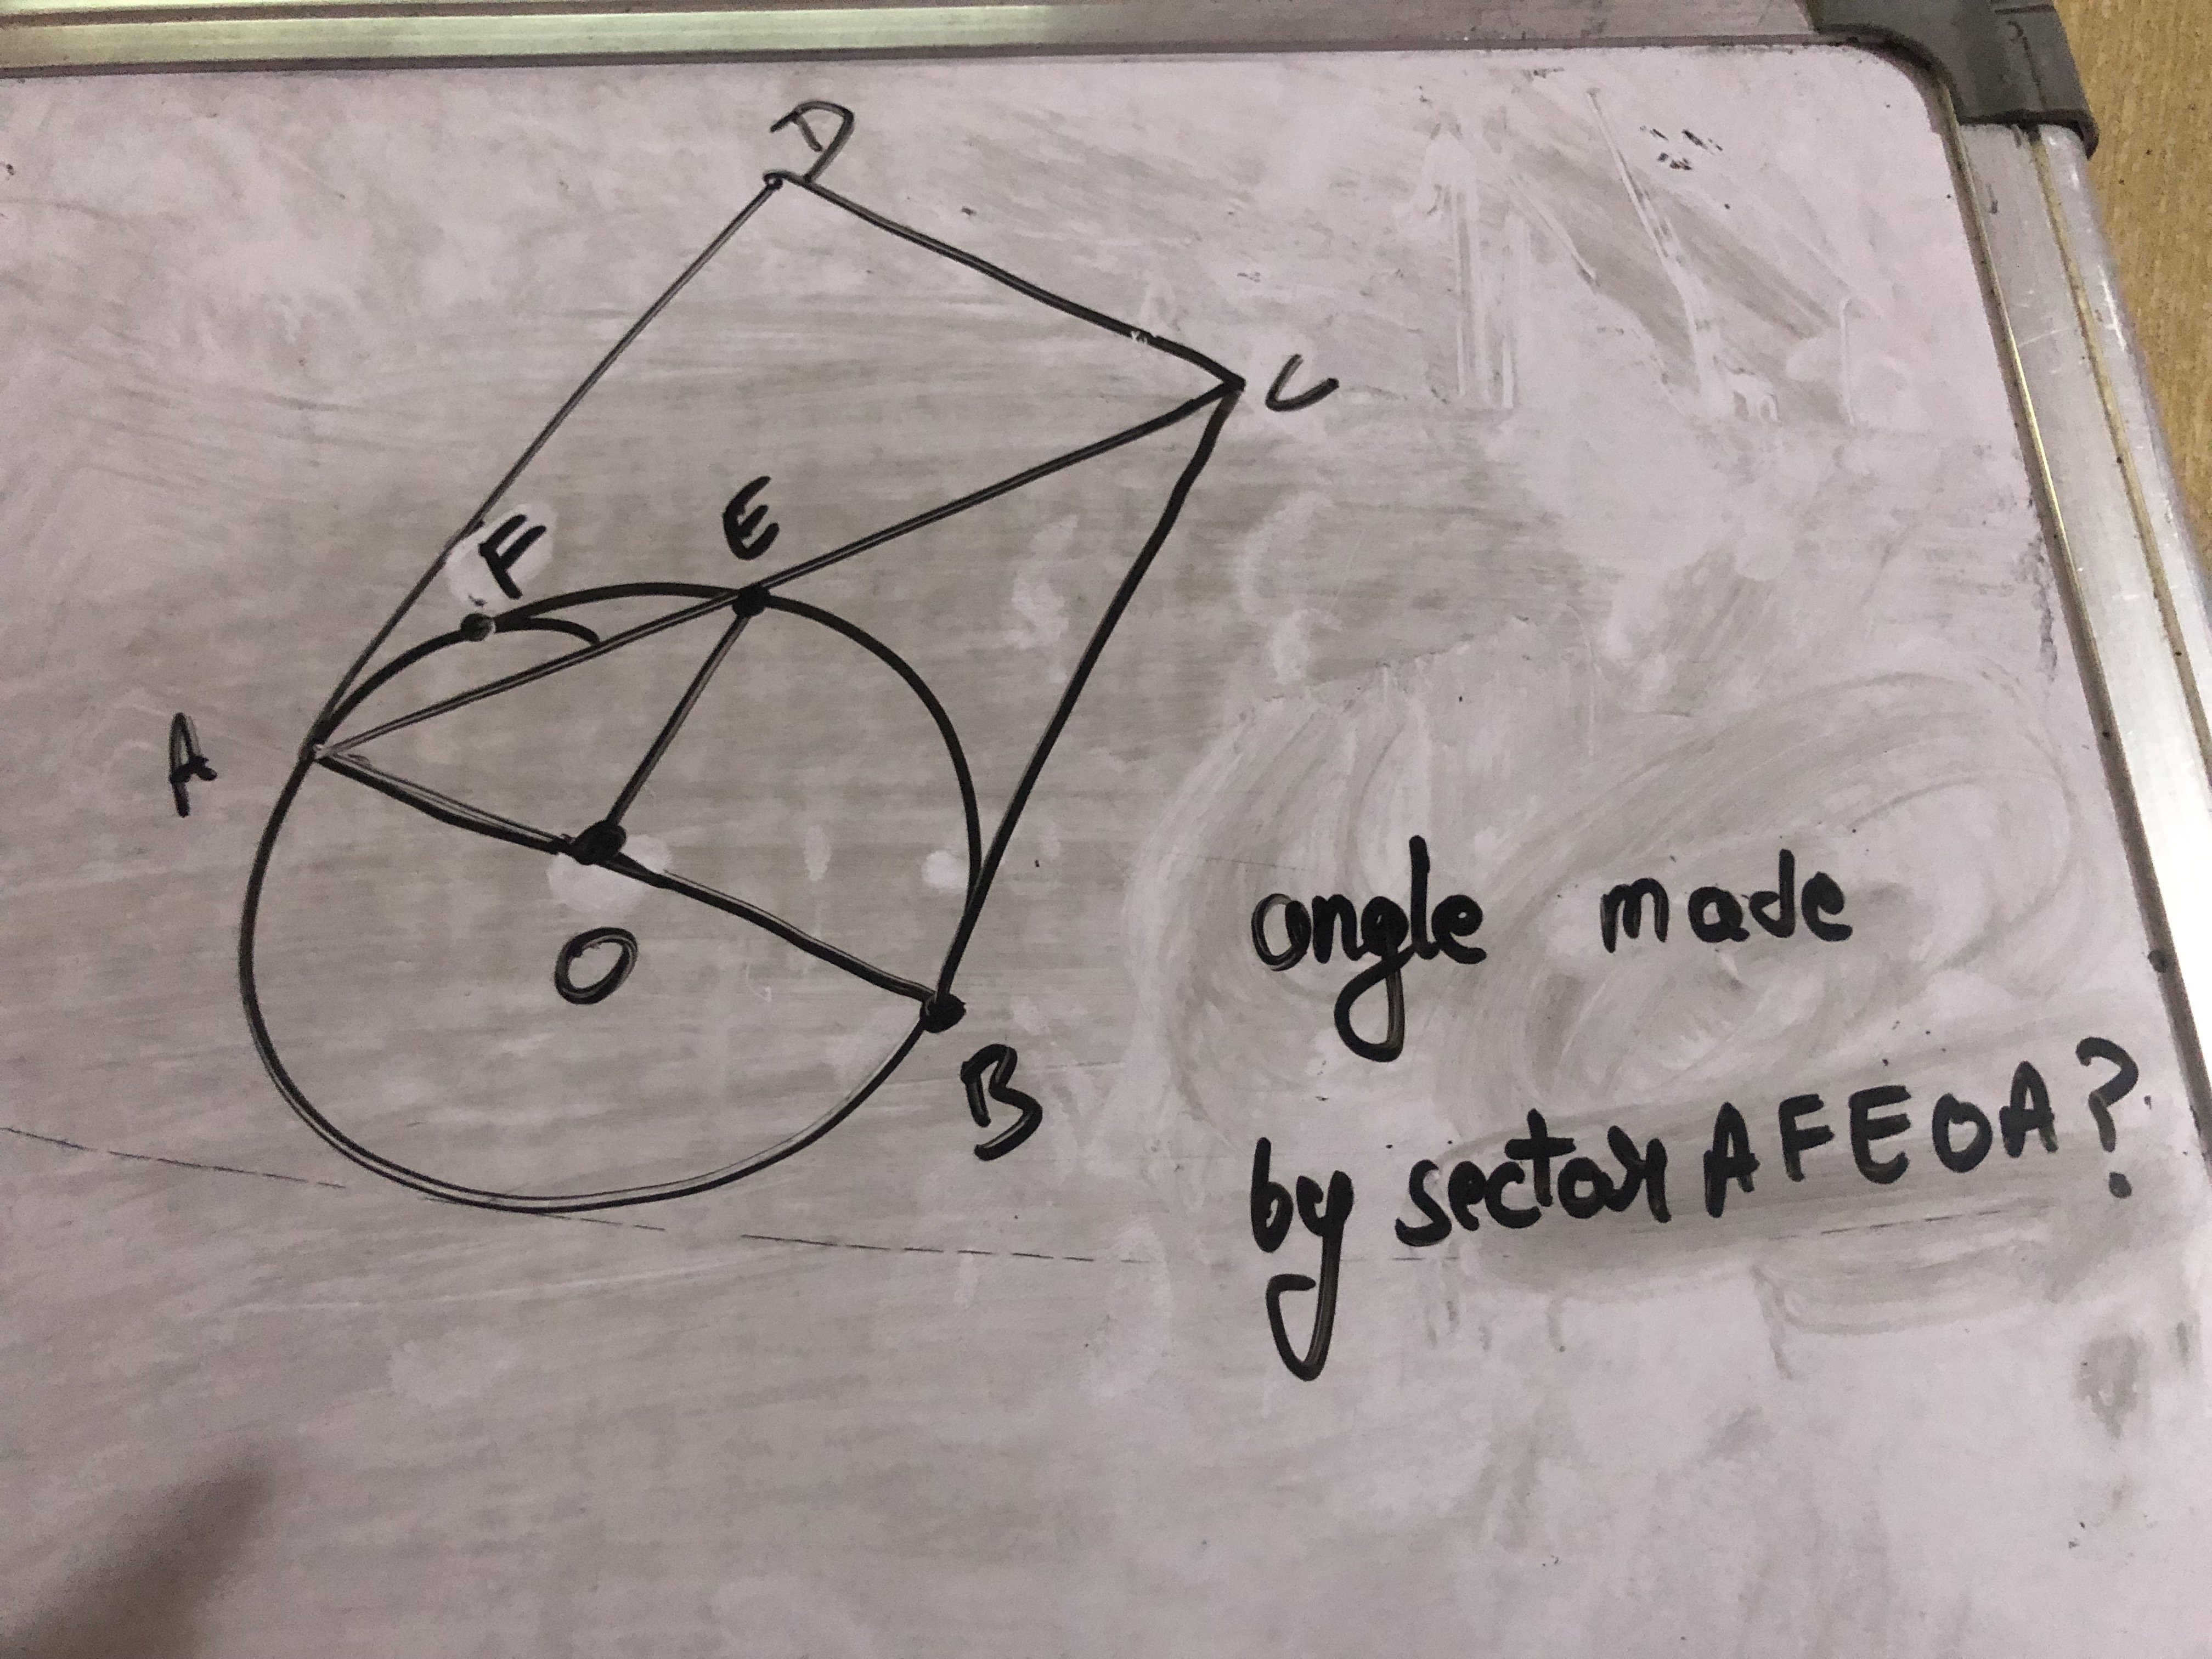 D
C
E
F
A
O
B
angle made
by sector AFEOA?